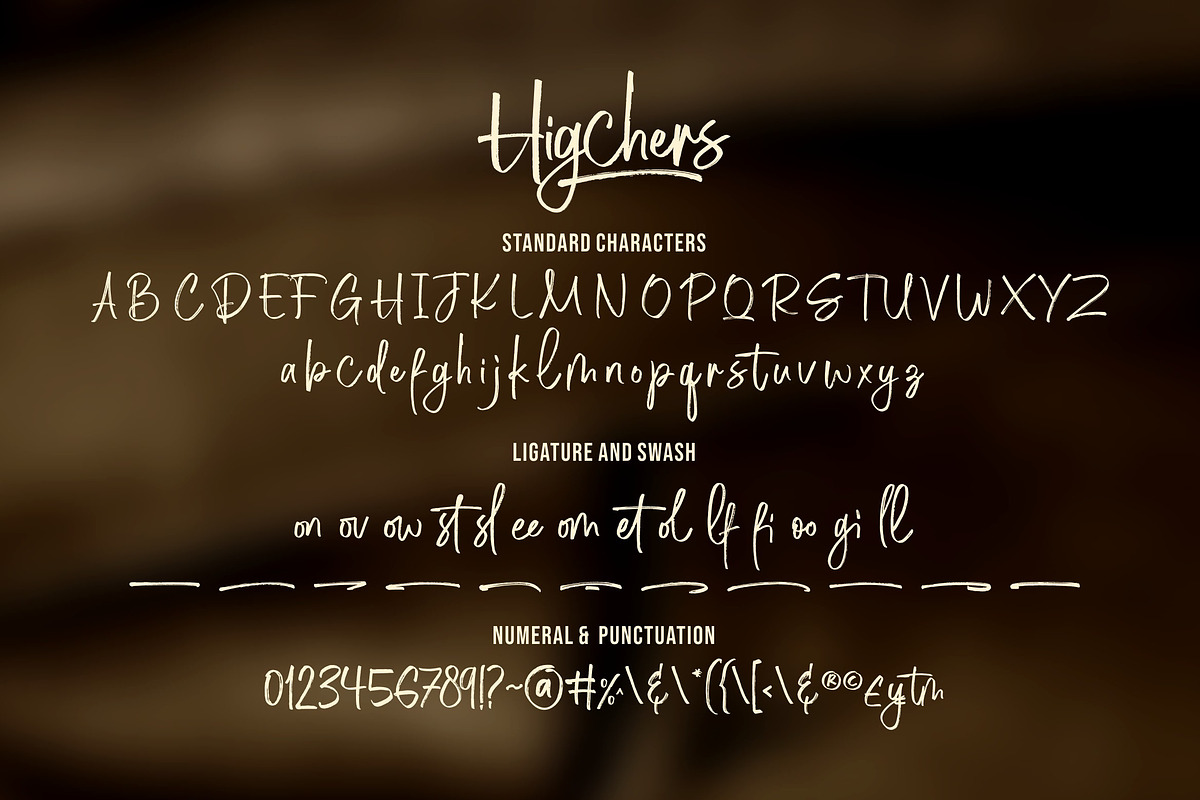 HigChers
STANDARD CHARACTERS
A B C D E F G H I J K L M N O P Q R S T U V W X Y Z
a b c d e f g h i j k l m n o p q r s t u v w x y z
LIGATURE AND SWASH
on ov ow st sl ee om et ol lf fi oo gi ll
NUMERAL & PUNCTUATION
0123456789!?~@#%^\&\*({\[<\&®©£